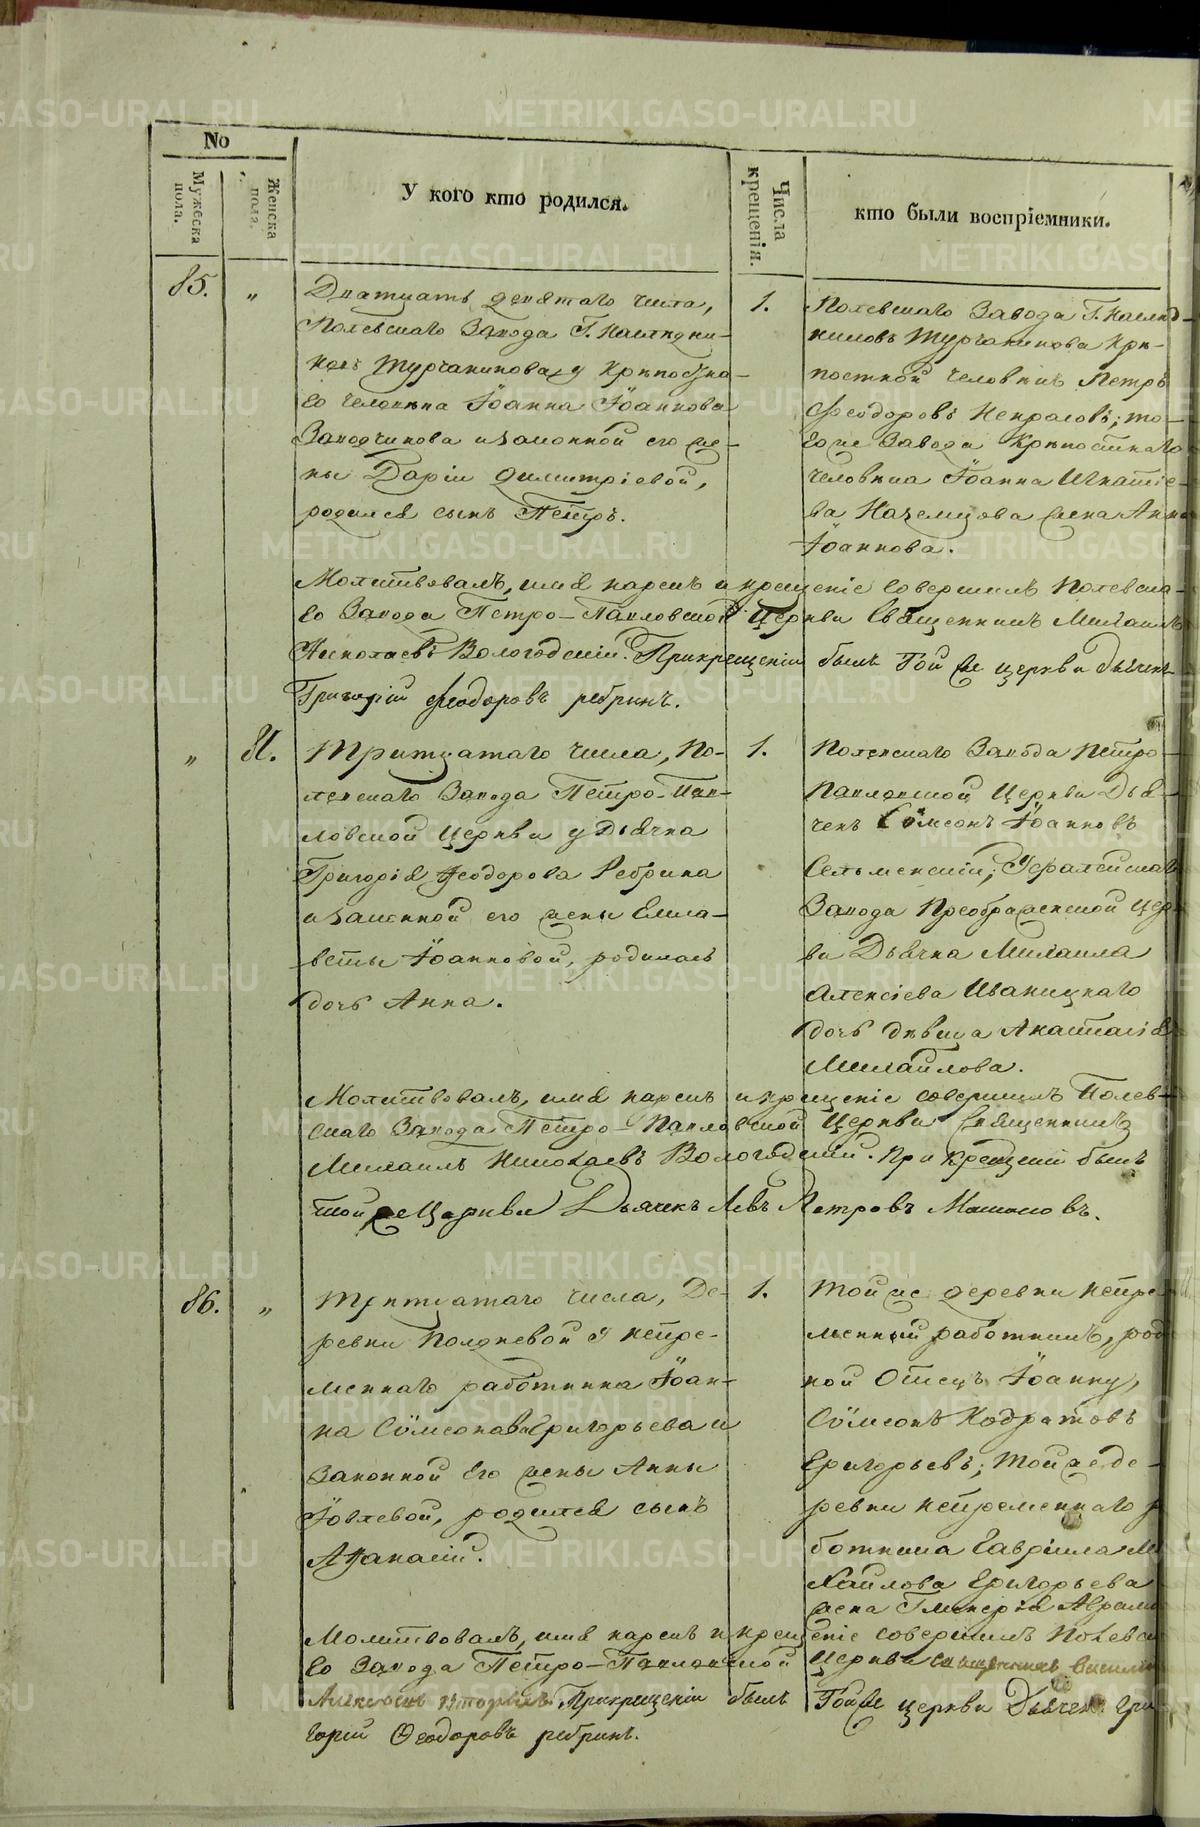 No
Мужеска пола.
Женска пола.
У кого кто родился.
Числа крещенія.
кто были воспріемники.
85.
"
Дватцать девятаго числа,
Полевскаго Завода Г. Наслѣдни-
ковъ Турчанинова, у Крѣпостна-
го человѣка Іоанна Іоаннова
Заводчикова и законной его же-
ны Даріи Димитріевой,
родился сынъ Петръ.
1.
Полевскаго Завода Г. Наслѣд-
никовъ Турчанинова Крѣ-
постной человѣкъ Петръ
Феодоровъ Некрасовъ; то-
го же Завода Крѣпостнаго
человѣка Іоанна Игнатіе-
ва Наземцова жена Анна
Іоаннова.
Молитвовалъ, имя нарекъ и крещеніе совершилъ Полевска-
го Завода Петро-Павловской Церкви Священникъ Михаилъ
Николаевъ Вологодскій. При крещеніи былъ Той же церкви Дьячекъ
Григорій Феодоровъ Ребринъ.
"
81.
Тритцатаго числа, По-
левскаго Завода Петро-Пав-
ловской Церкви у Дьячка
Григорія Феодорова Ребрина
и законной его жены Елиса-
веты Іоанновой, родилась
дочь Анна.
1.
Полевскаго Завода Петро-
Павловской Церкви Дья-
чекъ Сѵмеонъ Іоанновъ
Сельменскій; Уфалейскаго
Завода Преображенской Церк-
ви Дьячка Михаила
Алексіева Иваницкаго
дочь дѣвица Анастасія
Михайлова.
Молитвовалъ, имя нарекъ и крещеніе совершилъ Полев-
скаго Завода Петро-Павловской Церкви Священникъ
Михаилъ Николаевъ Вологодскій. При крещеніи былъ
той же Церкви Дьячекъ Левъ Петровъ
86.
"
Тритцатаго числа, Де-
ревни Полдневой у непре-
меннаго работника Іоан-
на Сѵмеонова Григорьева и
Законной Его жены Анны
Іовлевой, родился сынъ
Аѳанасій.
1.
Той же деревни непре-
менный работникъ, род
ной Отецъ Іоанну,
Сѵмеонъ Кодратовъ
Григорьевъ; Той же де-
ревни непременнаго р
ботника Гавріила Ми
хайлова Григорьева
жена Гликерія Аврам
Молитвовалъ, имя нарекъ и крещеніе совершилъ Полевск
го Завода Петро-Павловской Церкви священникъ Василій
При крещеніи былъ Той же церкви Дьячекъ Гри-
горій Феодоровъ Ребринъ.